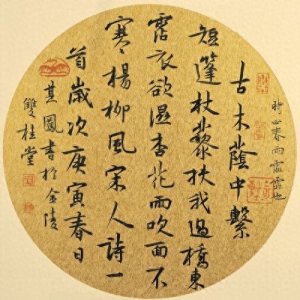 古木蔭中繫
短篷杖藜扶我過橋東
霑衣欲濕杏花雨吹面不
寒楊柳風宋人詩一
首歲次庚寅春日
書於金陵
雙桂堂
春雨霏霏也